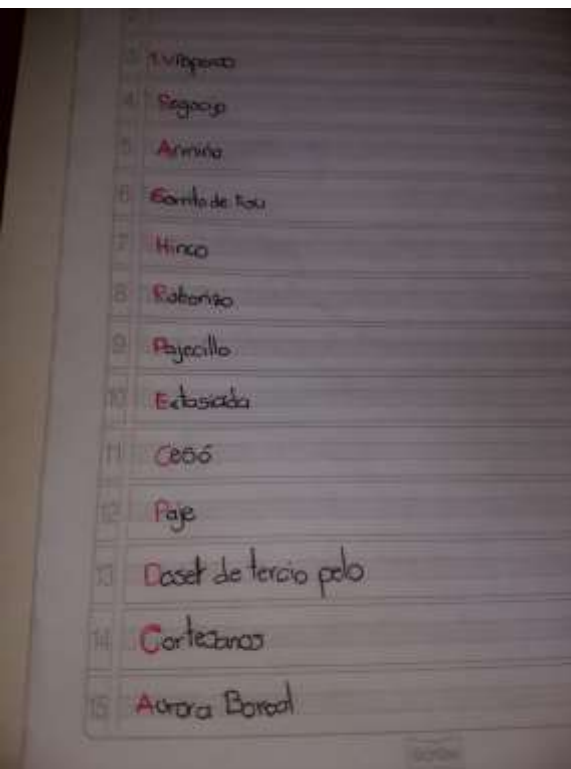 3
4 Regocijo
5 Armiño
6 Gorrito de
7 Hinco
8
9 Pajecillo
10 Extasiada
11 Cesó
12 Paje
13 Dosel de tercio pelo
14 Cortesanos
15 Aurora Boreal